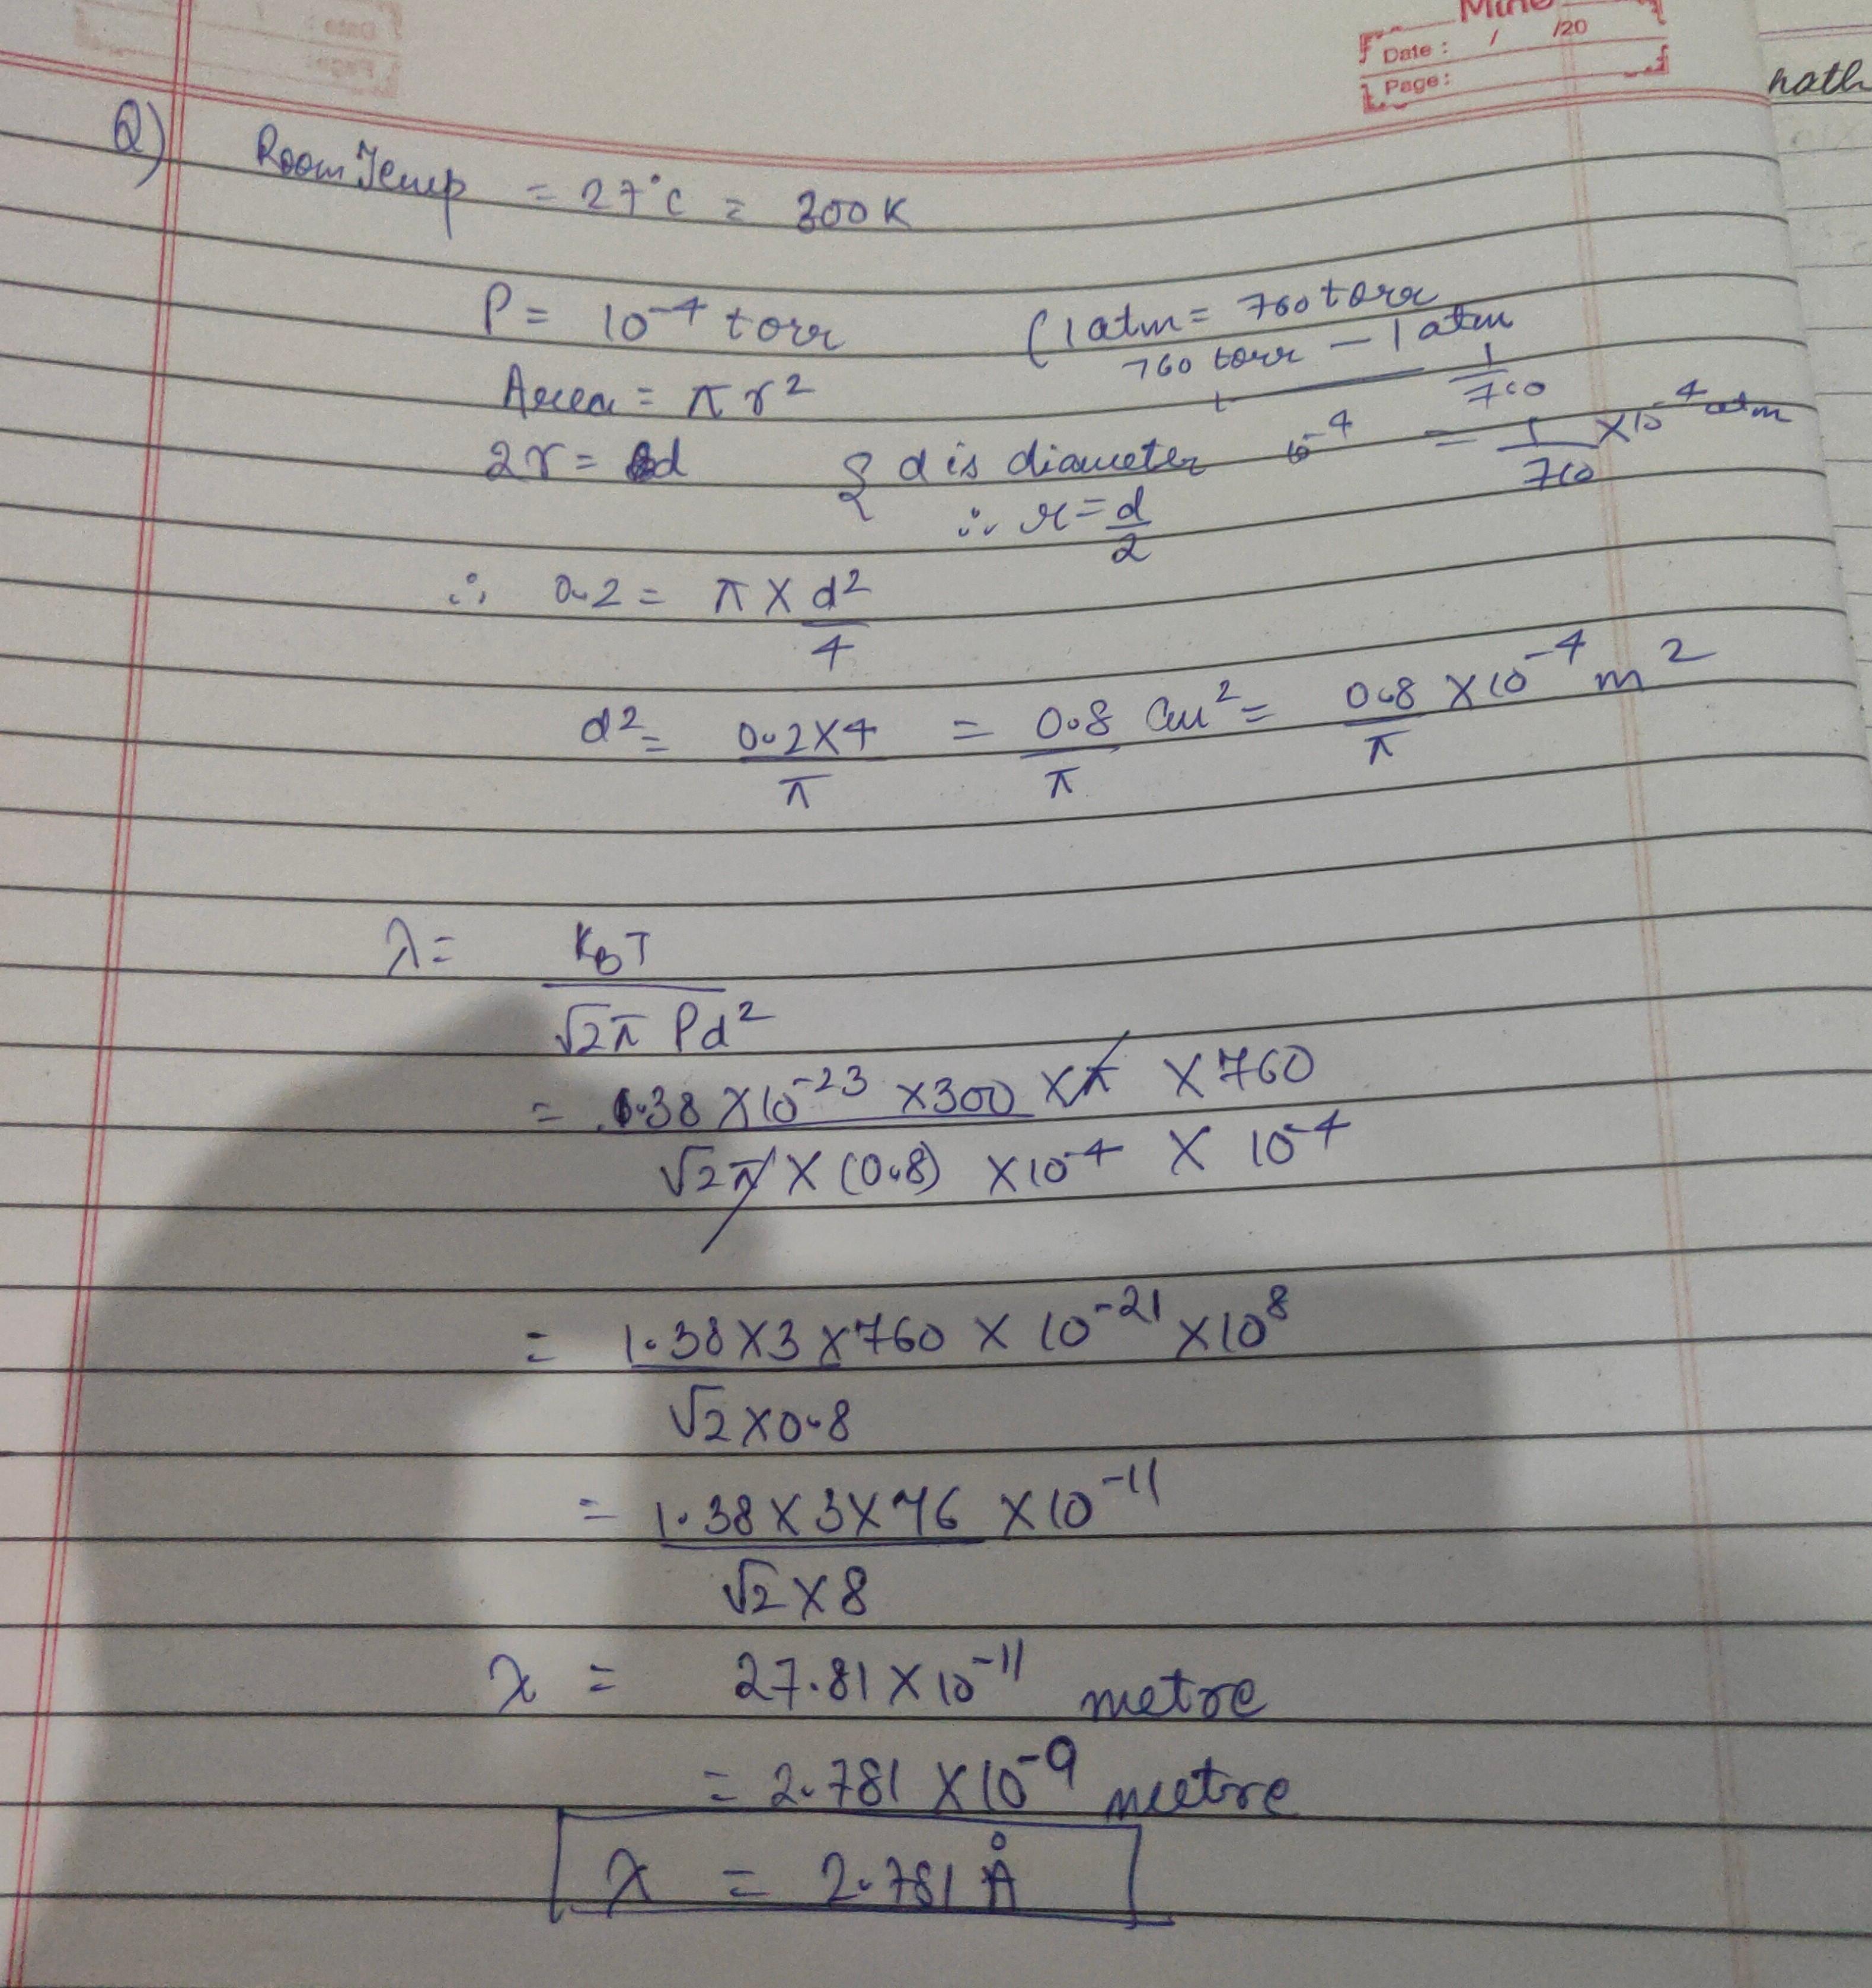 Mine
Date : / /20
Page:
nath
Q) Room Temp = 27°C = 300K
P = 10⁻⁴ torr (1 atm = 760 torr
760 torr — 1 atm
Area = πr² 1 1/760
2r = d { d is diameter 10⁻⁴ = 1/760 × 10⁻⁴ atm
∴ r = d/2
∴ 0.2 = π × d²/4
d² = 0.2×4/π = 0.8/π cm² = 0.8/π × 10⁻⁴ m²
λ = K_BT/√2π Pd²
= 1.38 × 10⁻²³ × 300 × π × 760/√2π × (0.8) × 10⁻⁴ × 10⁻⁴
= 1.38 × 3 × 760 × 10⁻²¹ × 10⁸/√2 × 0.8
= 1.38 × 3 × 76 × 10⁻¹¹/√2 × 8
λ = 27.81 × 10⁻¹¹ metre
= 2.781 × 10⁻⁹ metre
λ = 2.781 Å